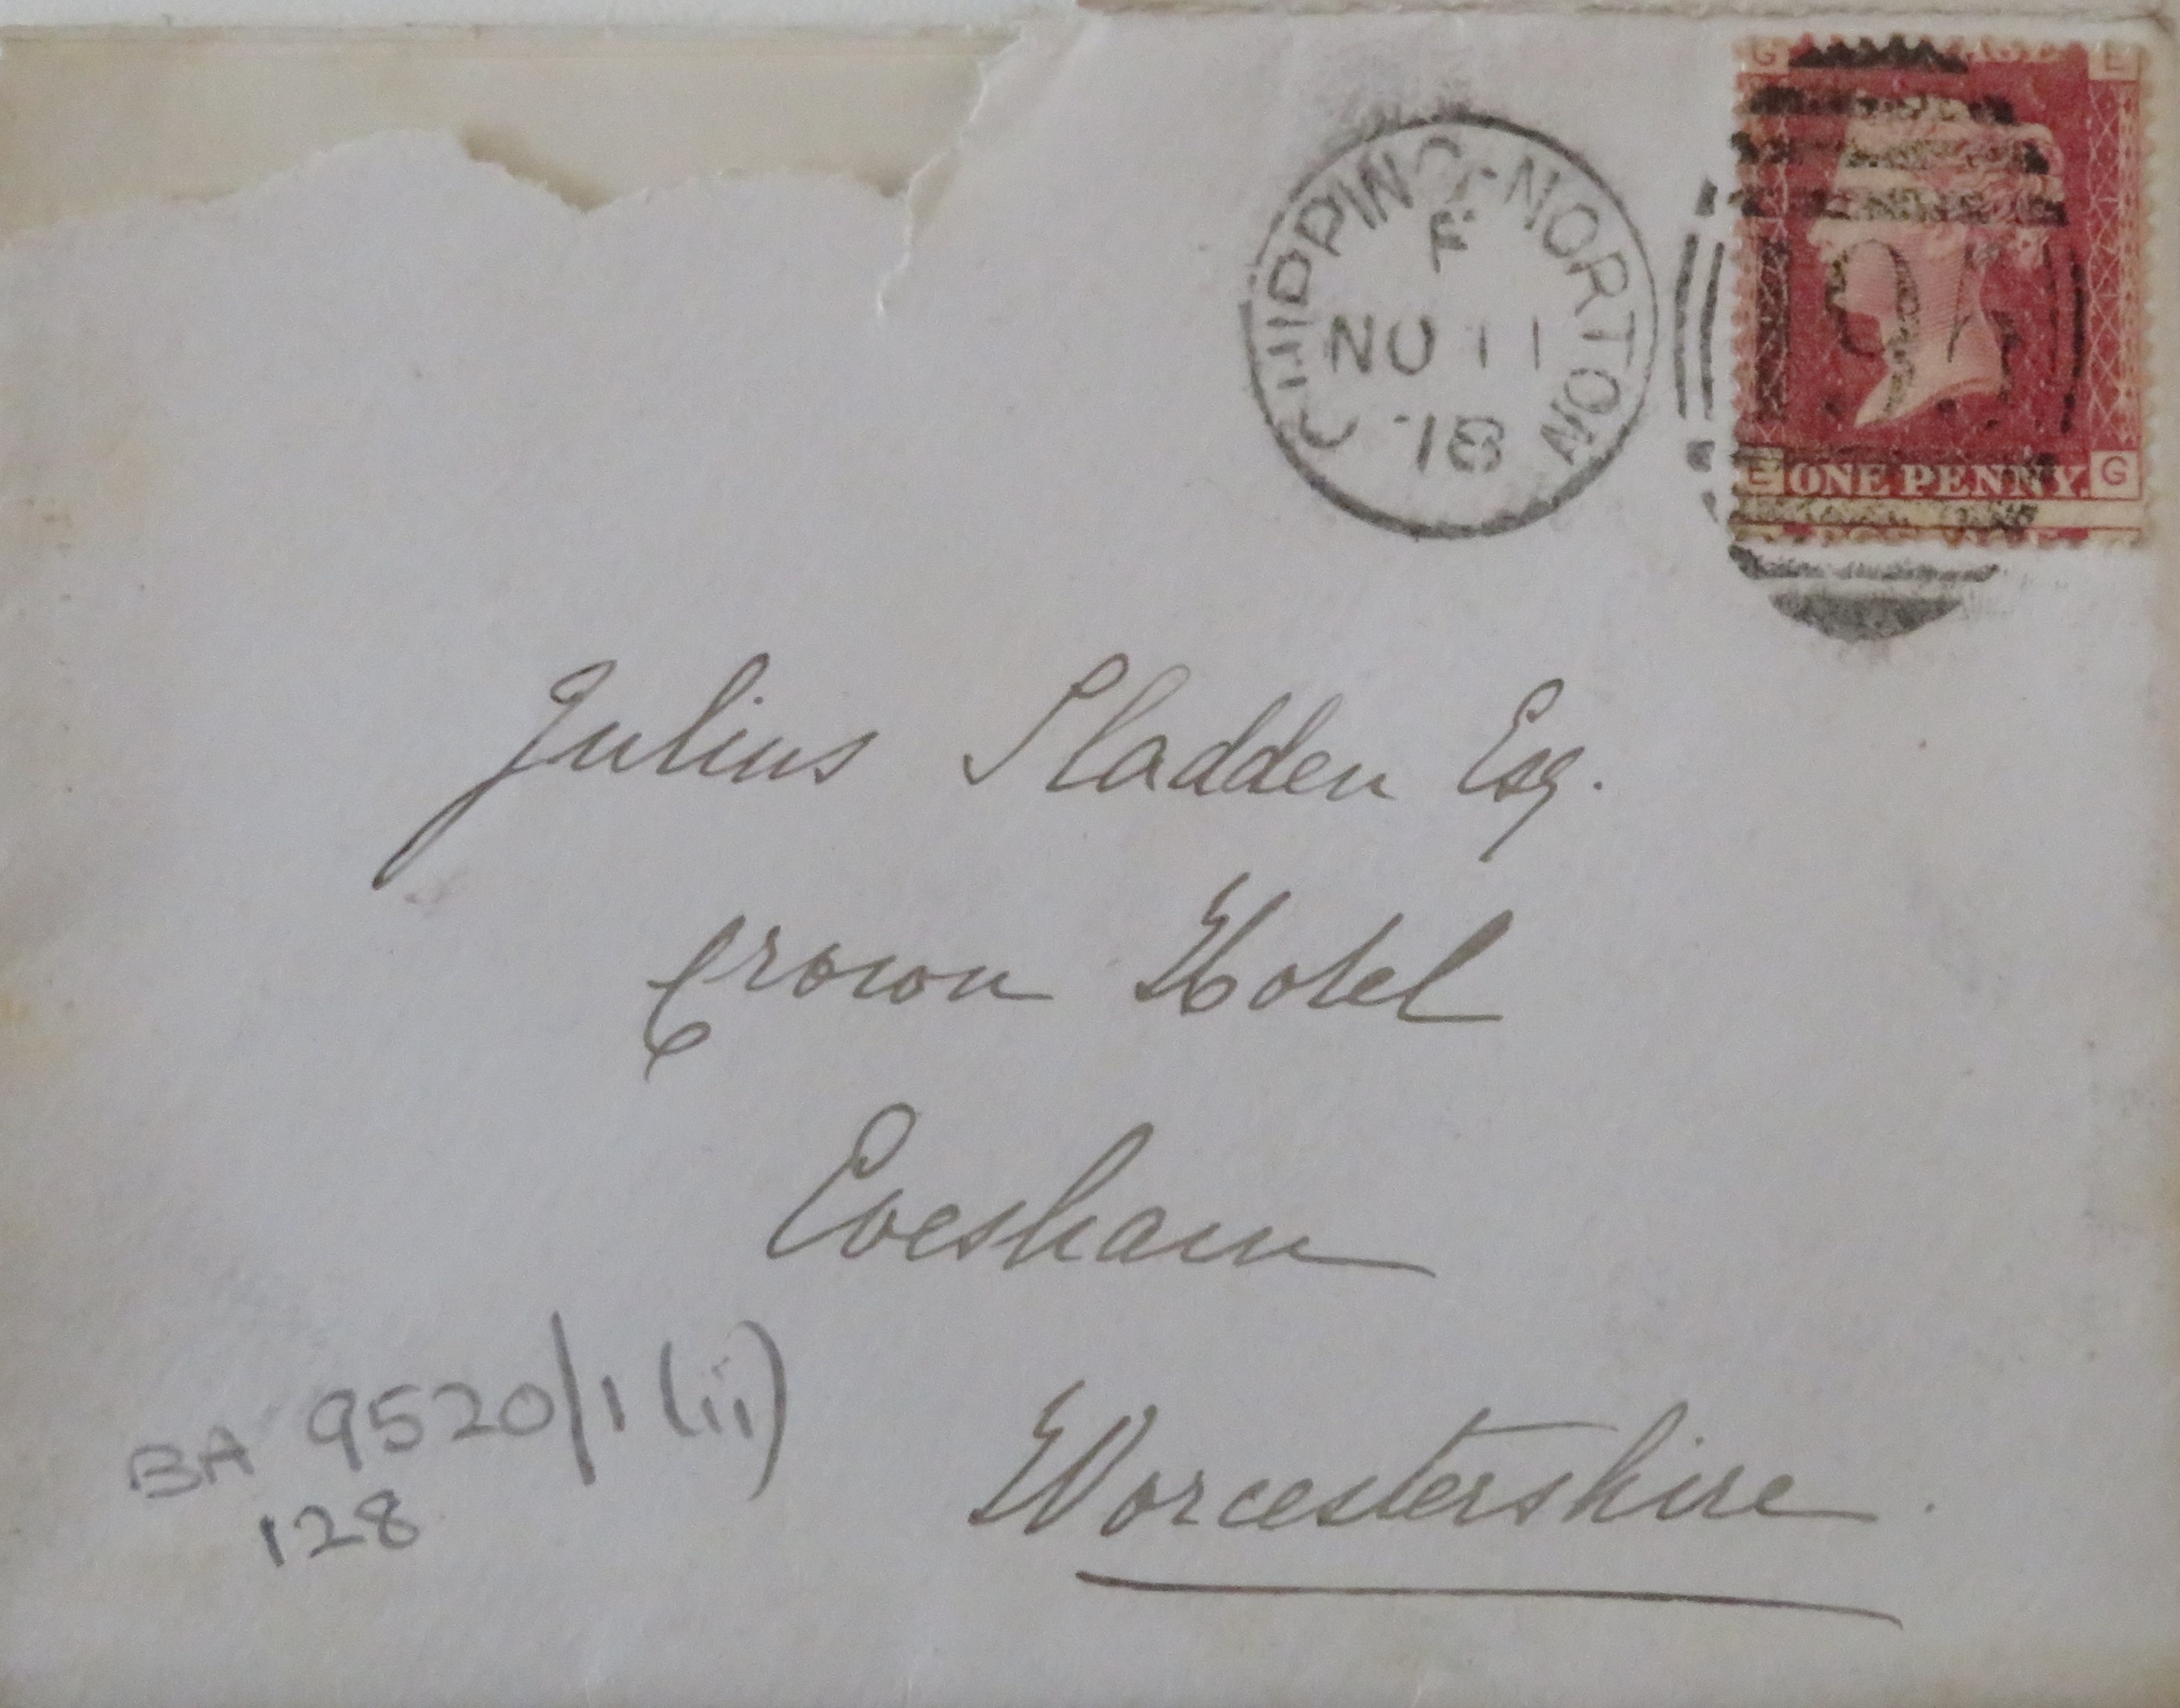 G E
CHIPPING-NORTON
F
NO 11
78
195
E ONE PENNY. G
Julius Sladden Esq.
Crown Hotel
Evesham
Worcestershire.
BA 9520/1 (ii)
128